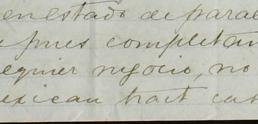 en estado de parae
pues completam
equier negocio, no
exican trait cus